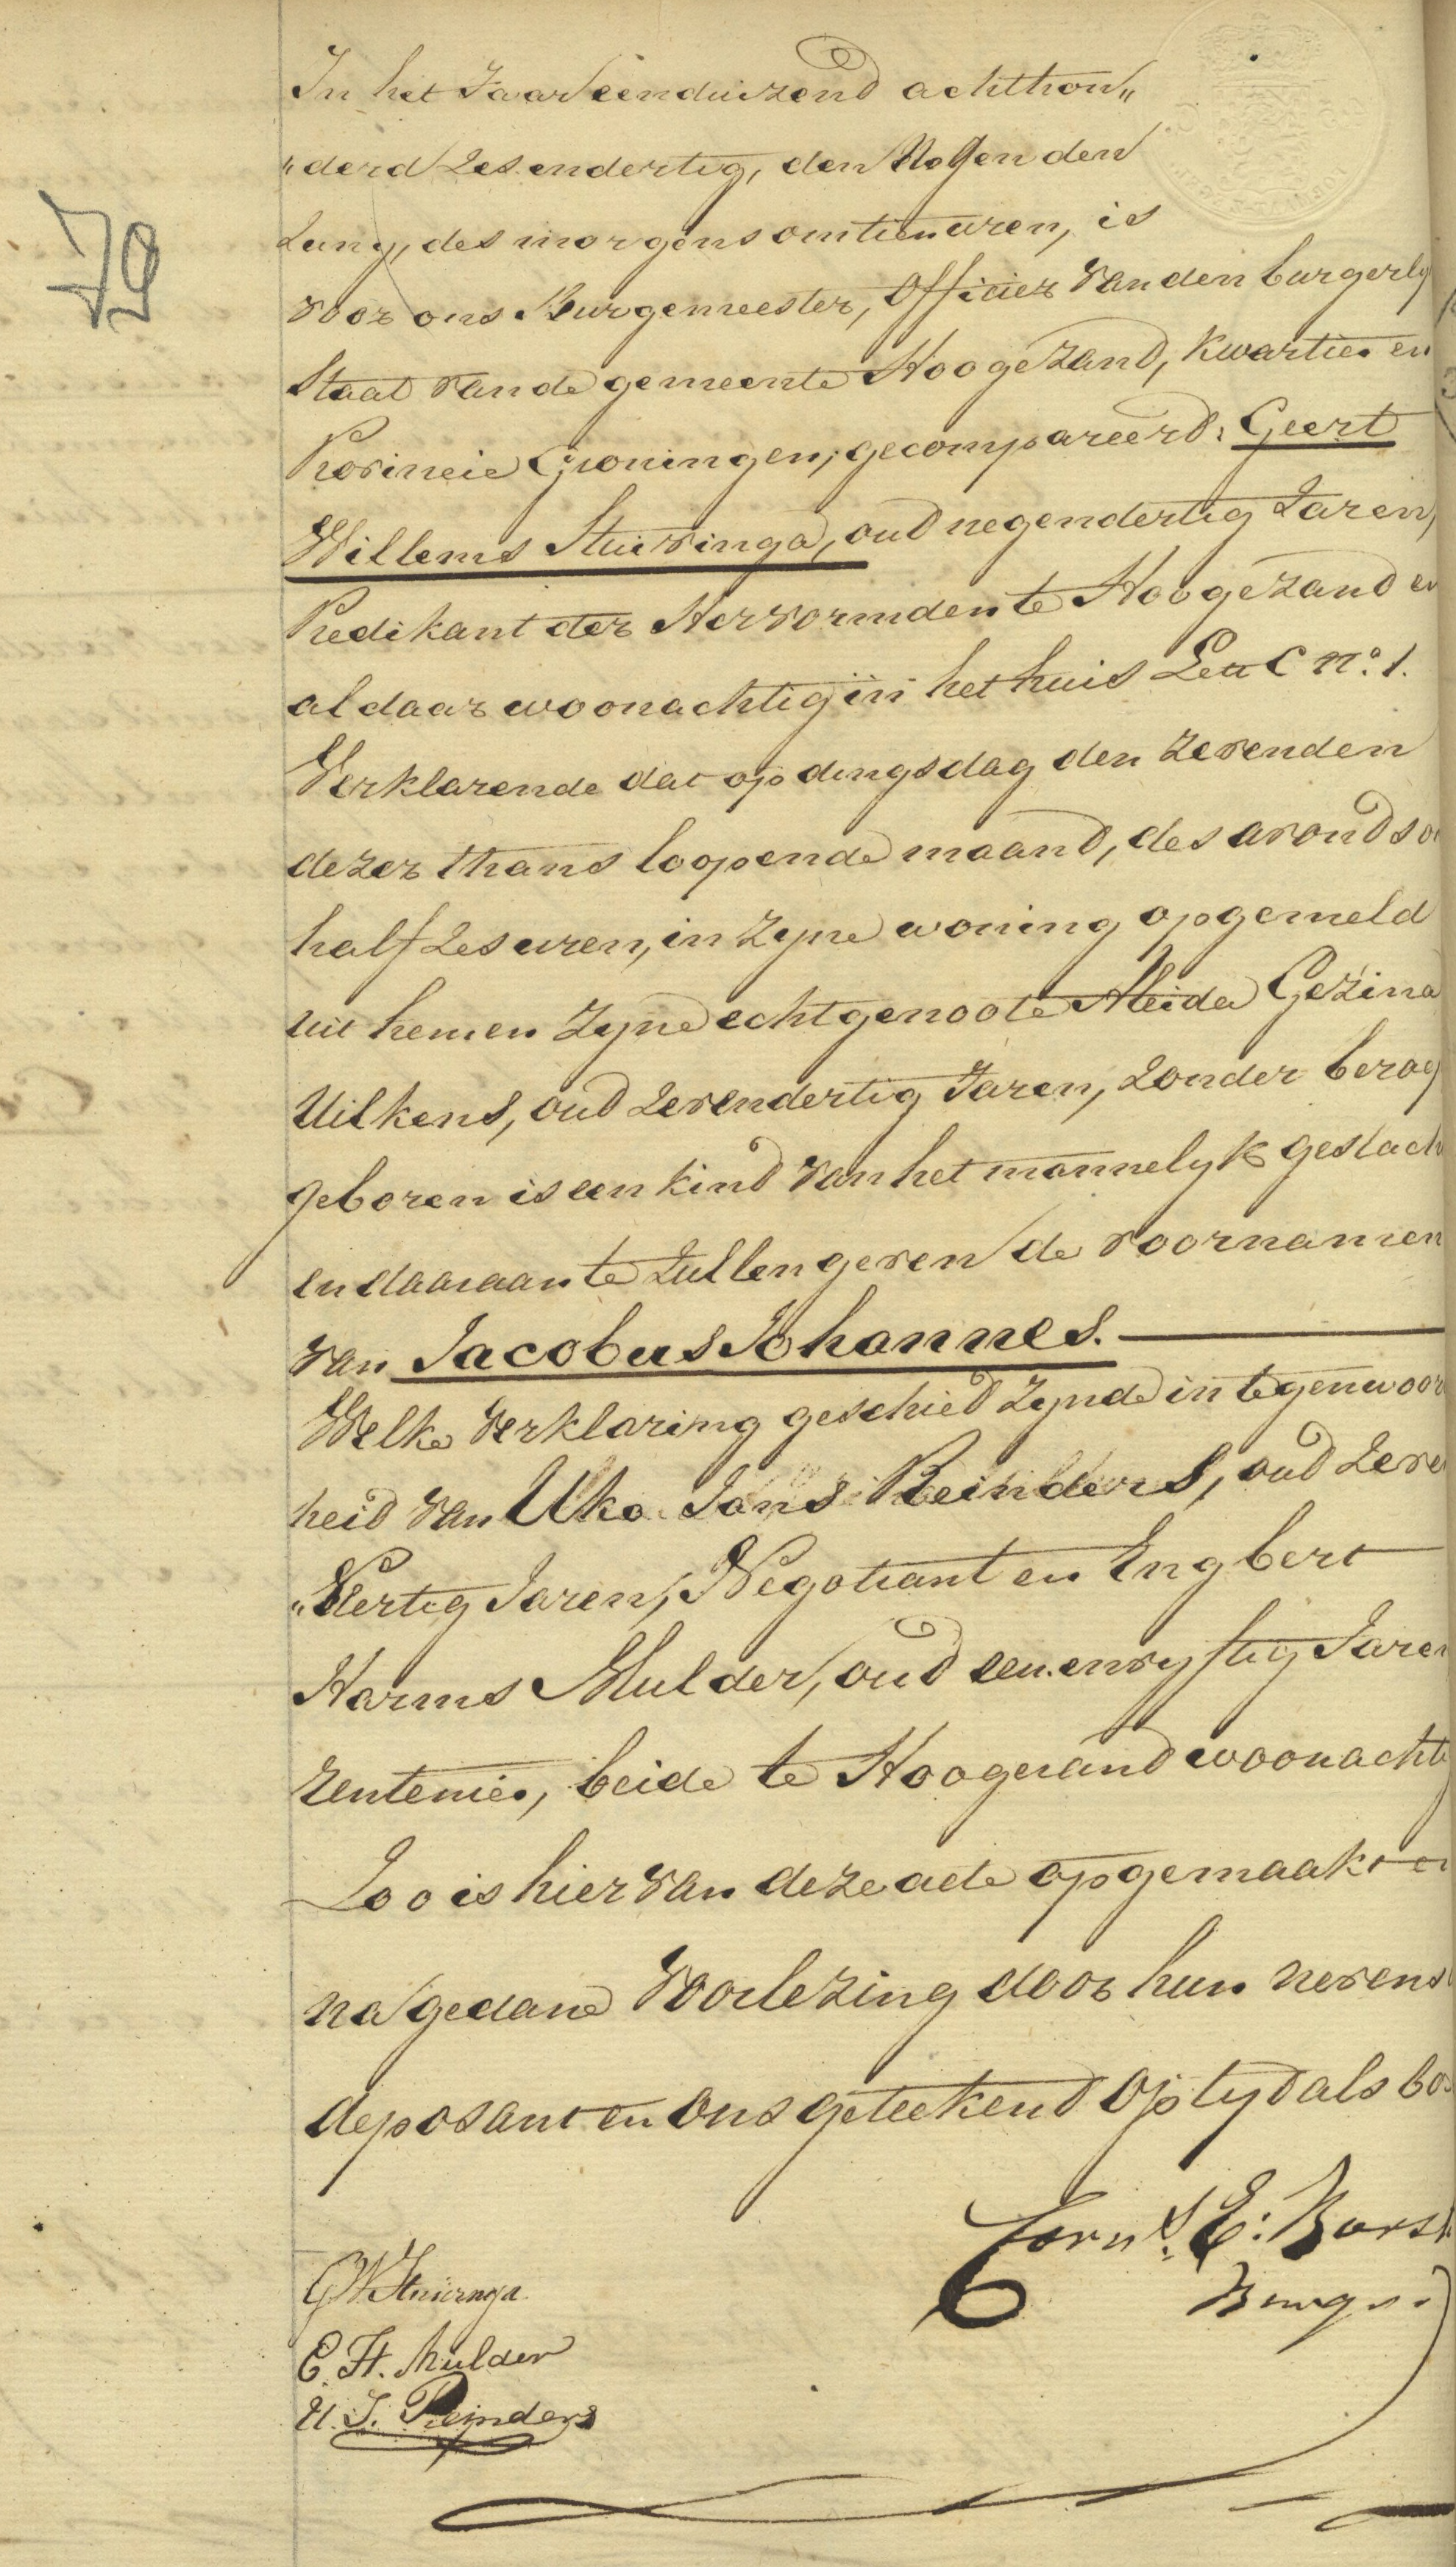 79
In het Jaar eenduizend achthon„
„derd Zes en dertig, den Negenden
Juny, des morgens om tien uren, is
voor ons Burgemeester, Officier van den burgerly
Staat van de gemeente Hoogezand, kwartier en
Provincie Groningen, gecompareerd: Geert
Willems Stuivinga, oud negendertig Jaren,
Predikant der Hervormden te Hoogezand en
aldaar woonachtig in het huis Lett C no. 1.
Verklarende dat op dingsdag den zevenden
dezer thans loopende maand, des avonds o
half Zes uren, in zyne woning opgemeld
uit hem en zyne echtgenoote Aleida Gezina
Uilkens, oud zevendertig Jaren, zonder beroep
geboren is een kind van het mannelyk geslach
en daaraan te zullen geven de voornamen
van Jacobus Johannes.
Welke Verklaring geschied zynde in tegenwoor
heid van Uko Jans Reinders, oud zeven
„Veertig Jaren, Negotiant en Engbert
Harms Mulder, oud een en vyftig Jaren
rentenier, beide te Hoogezand woonachti
Zoo is hier van deze acte opgemaakt en
na gedane Voorlezing door hun nevens
deposant en ons geteekend op tyd als bo
Corns. E: Borst
Burgr.
GWStuivinga
E. H. Mulder
U. J. Reinders